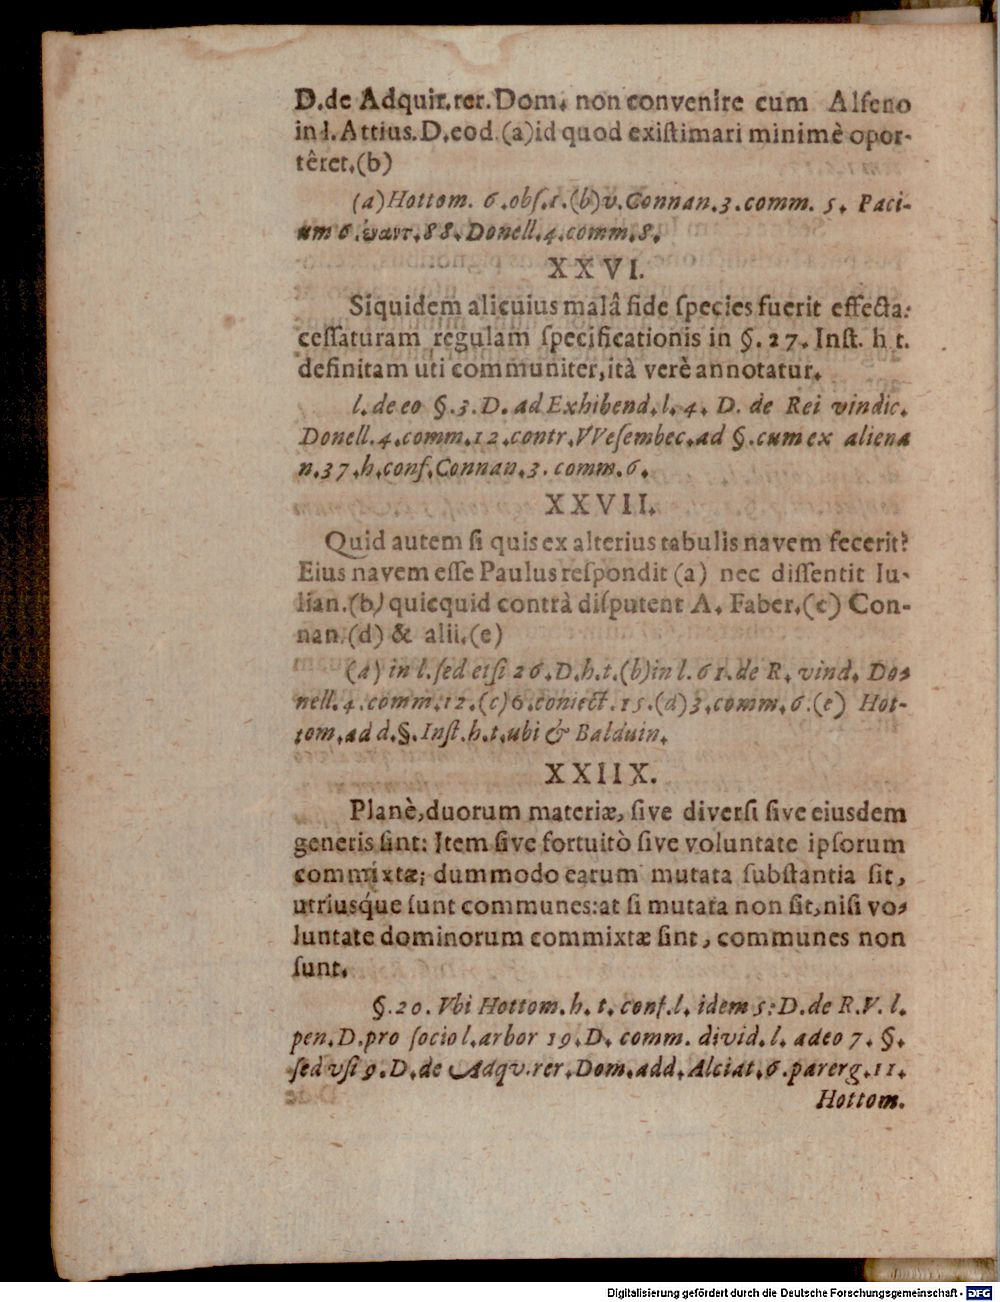 D.de Adquir.rer.Dom. non convenire cum Alfeno
in l. Attius. D.eod.(a)id quod exiſtimari minimè opor-
têret.(b)
(a)Hottom. 6.obſ.1.(b)v.Connan.3.comm. 5. Paci-
um 6. 88. Donell.4.comm.8.
XXVI.
Siquidem alicuius malâ fide ſpecies fuerit effecta:
ceſſaturam regulam ſpecificationis in §.27. Inſt. h t.
definitam uti communiter,ità verè annotatur.
l.de eo §.3.D. ad Exhibend.l.4. D. de Rei vindic.
Donell.4.comm.12.contr.VVeſembec.ad §.cum ex aliena
n.37.h.conf.Connan.3. comm.6.
XXVII.
Quid autem ſi quis ex alterius tabulis navem fecerit?
Eius navem eſſe Paulus reſpondit (a) nec diſſentit Iu-
lian.(b) quicquid contrà diſputent A. Faber.(c) Con-
nan.(d) & alii.(e)
(a) in l.ſed etſi 26.D.h.t.(b)in l.61.de R. vind. Do-
nell.4.comm.12.(c)6.coniect.15.(d)3.comm.6.(e) Hot-
tom.ad d.§.Inſt.h.t.ubi & Balduin.
XXIIX.
Planè,duorum materiæ, ſive diverſi ſive eiusdem
generis ſint: Item ſive fortuitò ſive voluntate ipſorum
commixtæ; dummodo earum mutata ſubſtantia ſit,
utriusq́ue ſunt communes:at ſi mutata non ſit,niſi vo-
luntate dominorum commixtæ ſint, communes non
ſunt.
§.20. Vbi Hottom.h. t. conf.l. idem 5:D.de R.V. l.
pen.D.pro ſocio l.arbor 19.D. comm. divid.l. adeo 7. §.
ſed vſi 9.D.de Adqv.rer.Dom.add.Alciat.6.parerg.11.
Hottom.
Digitalisierung gefördert durch die Deutsche Forschungsgemeinschaft - DFG